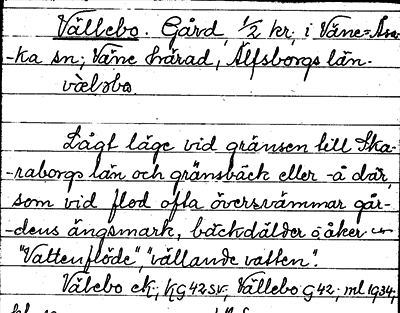 Vällebo. Gård, 1/2 kr, i Väne=Åsa-
-ka sn; Väne härad, Älfsborgs län.
Lågt läge vid gränsen till Ska-
-raborgs län och gränsbäck eller -å där,
som vid flod ofta översvämmar går-
-dens ängsmark, bäckdälder o åker
"Vattenflöde", "vällande vatten".
Välebo ek; kg 42 sv; Vällebo G42; ml 1934;